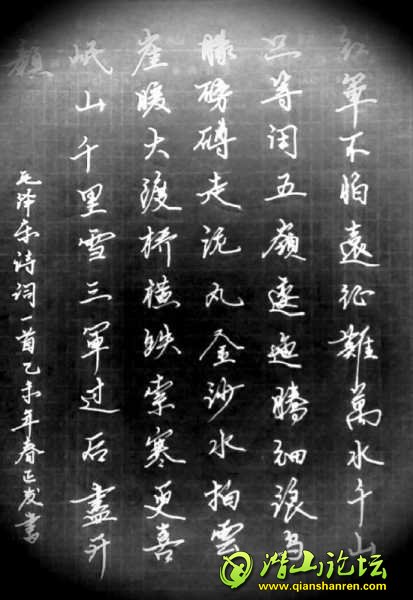 红軍不怕遠征難萬水千山
只等闲五嶺逶迤腾细浪乌
朦磅礴走泥丸金沙水拍雲
崖暖大渡桥横铁索寒更喜
岷山千里雪三軍过后盡开
颜
毛泽东诗词一首乙未年春正发書
潜山论坛
www.qianshanren.com